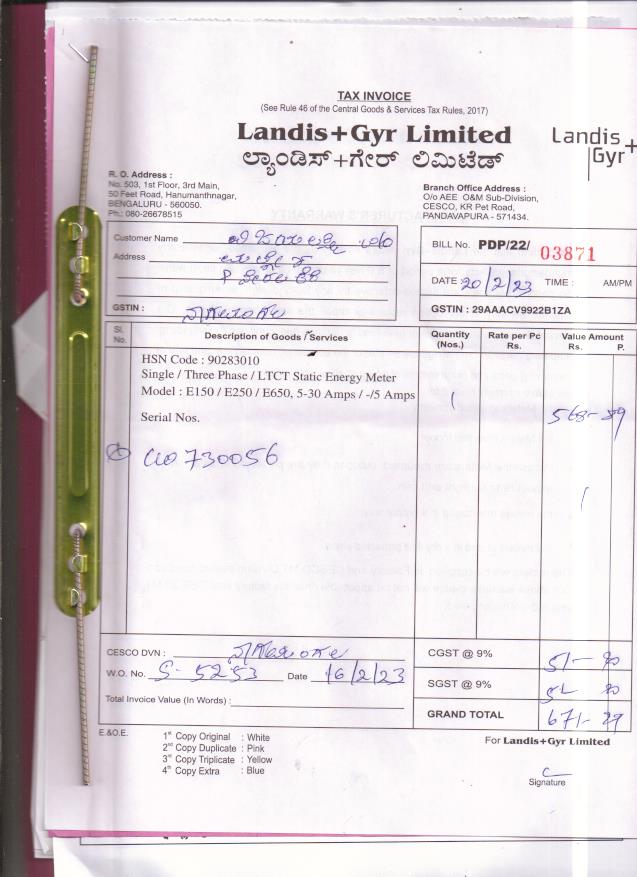 TAX INVOICE
(See Rule 46 of the Central Goods & Services Tax Rules, 2017)
Landis+Gyr Limited
ಲ್ಯಾಂಡಿಸ್+ಗೇರ್ ಲಿಮಿಟೆಡ್
Landis+
Gyr
R. O. Address :
No. 503, 1st Floor, 3rd Main,
50 Feet Road, Hanumanthnagar,
BENGALURU - 560050.
Ph.: 080-26678515
Branch Office Address :
O/o AEE O&M Sub-Division,
CESCO, KR Pet Road,
PANDAVAPURA - 571434.
Customer Name
Address
GSTIN :
BILL No. PDP/22/ 03871
DATE 20/2/23 TIME : AM/PM
GSTIN : 29AAACV9922B1ZA
Sl. No. Description of Goods / Services Quantity (Nos.) Rate per Pc Rs. Value Amount Rs. P.
HSN Code : 90283010
Single / Three Phase / LTCT Static Energy Meter
Model : E150 / E250 / E650, 5-30 Amps / -/5 Amps 1
Serial Nos. 568-89
730056
CESCO DVN :
W.O. No. S-5253 Date 16/2/23
Total Invoice Value (In Words) :
CGST @ 9% 51-20
SGST @ 9% 51 20
GRAND TOTAL 671-29
E.&O.E.
1st Copy Original : White
2nd Copy Duplicate : Pink
3rd Copy Triplicate : Yellow
4th Copy Extra : Blue
For Landis+Gyr Limited
Signature